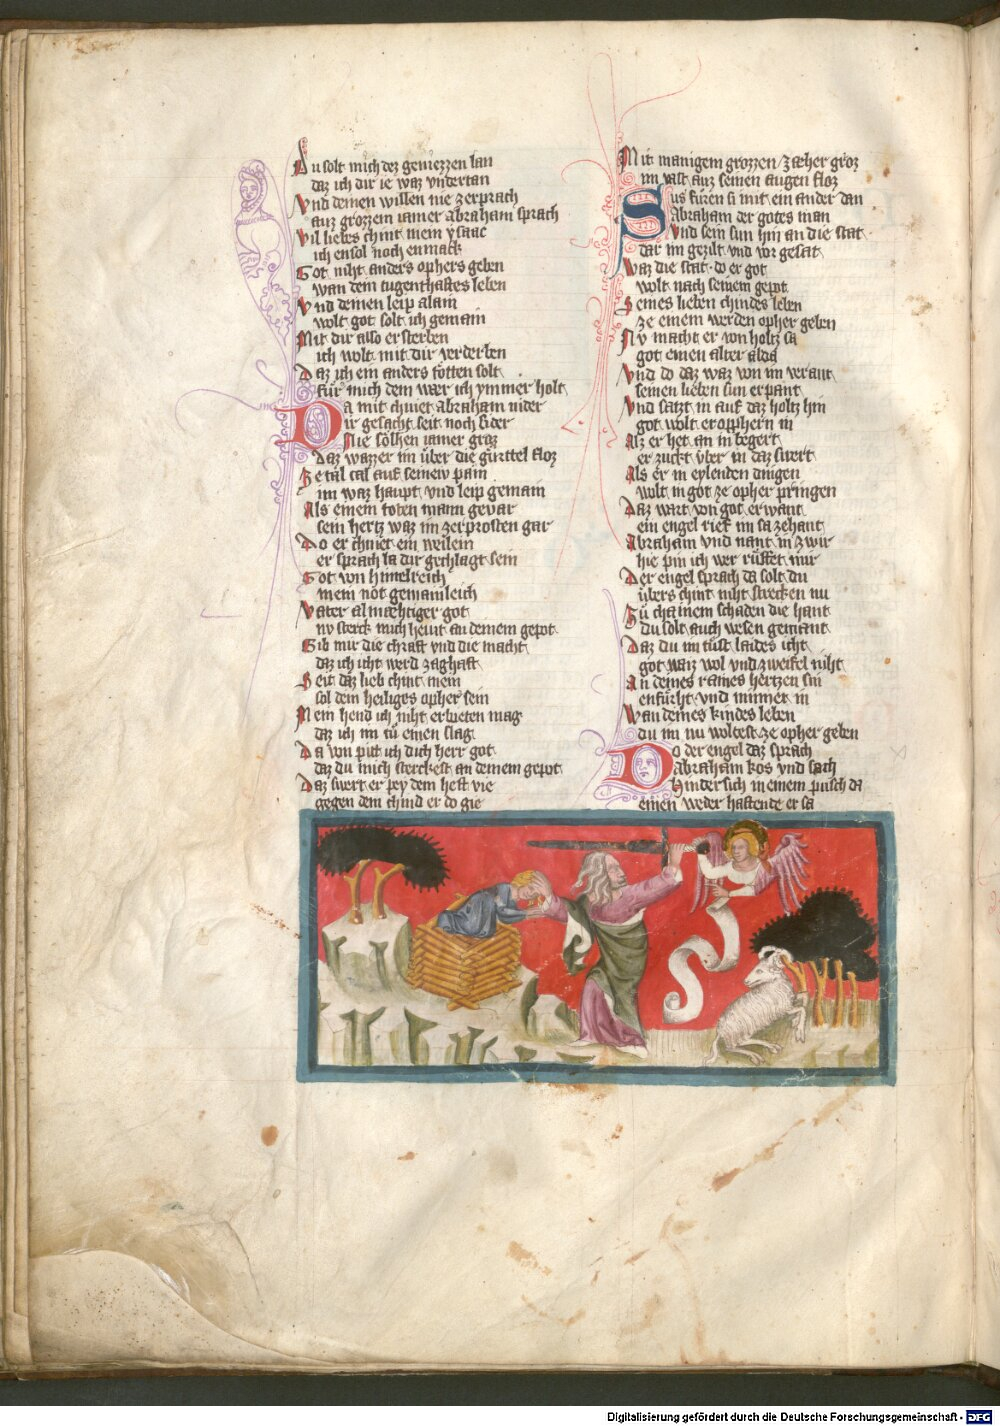 Du solt mich dez geniezzen lan
daz ich dir ie waz vndertan
Vnd deinen willen nie zerprach
auz grozzem iamer abraham sprach
Vil liebes chint mein ysaac
ich ensol noch enmack
Got niht anders ophers geben
wan dem tugenthaftes leben
Vnd deinen leip alain
wolt got solt ich gemain
Mit dir also ersterben
ich wolt mit dir verderben
Daz ich ein anders totten solt
für mich dem wær ich ymmer holt
Da mit chniet abraham nider
Dir gesacht seit noch sider
Nie sölhen iamer groz
Daz wazzer im über die gürttel floz
Ze tal auf seinew pain
im waz haupt vnd leip gemain
Als einem toten mann gevar
sein hertz waz im zerprosten gar
Do er chniet ein weilein
er sprach la dir gechlagt sein
Got von himelreich
mein not gemainleich
Vater almæhtiger got
ny sterck mich hewt an deinem gepot
Gib mir die chraft vnd die macht
daz ich iht werd zaghaft
Seit daz lieb chint mein
sol dein heiliges opher sein
Mein hend ich niht erbieten mag
daz ich im tů einen slag
Da von pitt ich dich herr got
daz du mich sterckest an deinem gepot
Daz swert er pey dem heft vie
gegen dem chind er do gie
Mit manigem grozzen zæher groz
im vast auz seinen augen floz
Sus füren si mit ein ander dan
Abraham der gotes man
Vnd sein sun hin an die stat
dar im gezilt vnd vor gesat
Waz die stat do er got
wolt nach seinem gepot
Seines lieben chindes leben
ze einem werden opher geben
Ny macht er von holtz sa
got einen alter alda
Vnd do daz waz von im verant
seinen lieben sun er pant
Vnd satzt in auf daz holtz hin
got wolt er opphern in
Alz er het an in begert
er zuckt über in daz swert
Als er in eylenden dingen
wolt in got ze opher pringen
Daz wart von got erwant
ein engel rief im sa zehant
Abraham vnd nant in zwir
hie pin ich wer rüffet mir
Der engel sprach da solt du
übers chint niht strecken nu
Zü chainem schaden die hant
du solt auch wesen gemant
Daz du im tüst laides icht
got waiz wol vnd zweifel niht
An deines raines hertzen sin
enfürht vnd minnet in
Wan deines kindes leben
du im nu woltest ze opher geben
Do der engel daz sprach
Abraham kos vnd sach
Hinder sich in einem pusch da
einen weder haftende er sa
Digitalisierung gefördert durch die Deutsche Forschungsgemeinschaft - DFG